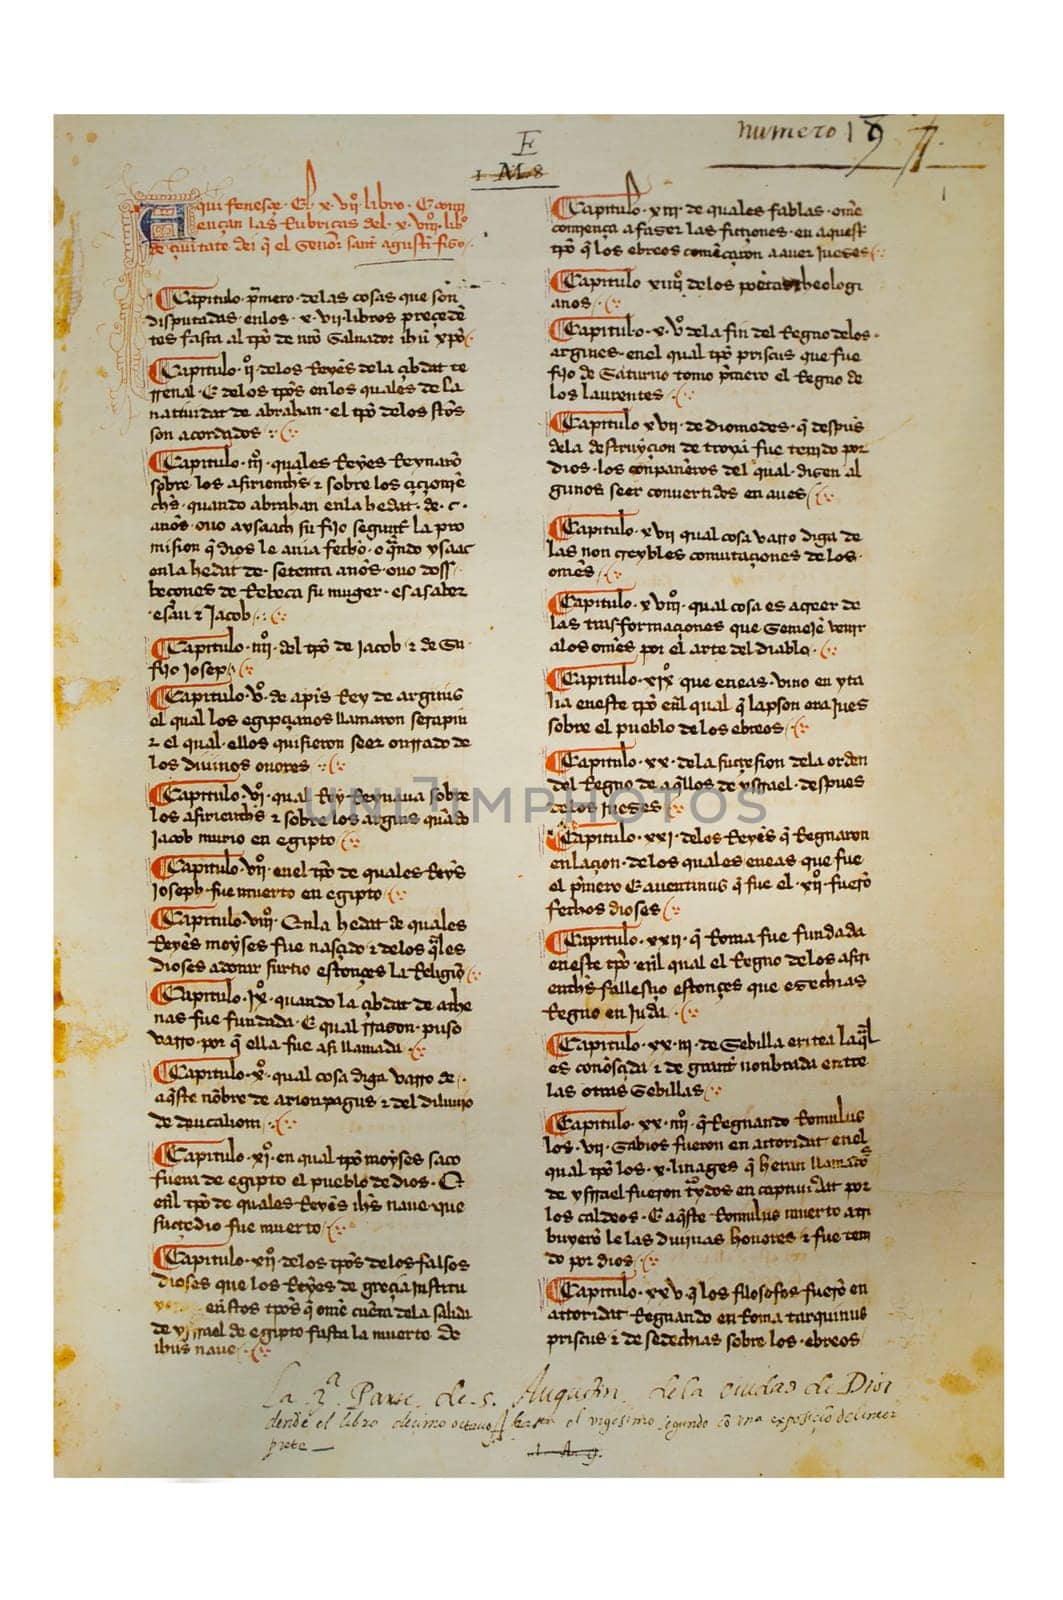 E
numero 197
1 M 8
Aqui fenesçe · El · x · vijº · libro · E comi
ençan las Rubricas del · x · viijº · libº
de çiuitate dei q̃ el Señor sant agustĩ fiso
Capitulo · pͥmero · delas cosas que son
disputadas · enlos · x · vij · libros preçedẽ
tes fasta al tpõ de nr̃o Saluador ihũ xp̃o
Capitulo · ijº · delos Reyes dela çibdat te
rrenal · E delos tpõs enlos quales de la
natiuidat de abrahan · el tpõ delos st̃os
son acordados
Capitulo · iijº · quales Reyes Reynarõ
sobre los asirienchs ⁊ sobre los çiçionie
chs · quando abrahan enla hedat · de · c ·
anõs · ouo aysaach su fijo segunt la pro
mision q̃ dios le auia fecho · o q̃ndo ysaac
enla hedat de · setenta anõs · ouo dos
becones de Rebeca su muger · es asaber
esau ⁊ Jacob
Capitulo · iiijº · del tpõ de Jacob ⁊ de Su
fijo Josep
Capitulo · vº · de apis Rey de arginis
el qual los egipçianos llamaron serapin
⁊ el qual · ellos quisieron seer onrrado de
los diuinos onores
Capitulo · vjº · qual Rey Reynaua sobre
los asirienchs ⁊ sobre los arginis quãdo
Jacob murio en egipto
Capitulo · vijº · enel tpõ de quales Reyes
Joseph · fue muerto en egipto
Capitulo · viijº · Enla hedat de quales
Reyes moyses fue nasçido ⁊ delos q̃les
dioses adorar surtio estonçes la Religiõ
Capitulo · ixº · quando la çibdat de athe
nas fue fundada · E qual rrason · puso
varro · por q̃ ella fue asi llamada
Capitulo · xº · qual cosa diga varro de
aq̃ste nõbre de ariopagus ⁊ del diluuio
de deucaliom
Capitulo · xjº · en qual tpõ moyses saco
fuera de egipto el pueblo de dios · E
enl̃ tpõ de quales Reyes ihũs naue · que
suçedio fue muerto
Capitulo · xijº · delos tpõs delos falsos
dioses que los Reyes de greçia institu
enstos tpõs q̃ om̃e cuẽta dela salida
de ysrrael de egipto fasta la muerte de
ihũs naue
Capitulo · xiij · de quales fablas · om̃e
comiença afaser las ficçiones · en aquest
tpõ q̃ los ebreos comẽçaron aauer Jueses
Capitulo xiiijº delos poetas theologi
anos
Capitulo · xvº dela fin del Regno delos ·
argines · enel qual tpõ priscus que fue
fijo de Saturno tomo pͥmero el Regno de
los laurentes
Capitulo xvij · de diomedes · q̃ despũs
dela destruyçion de troya fue tenido por
dios · los conpañeros del qual · disen al
gunos seer conuertidos en aues
Capitulo · xvij qual cosa varro diga de
las non creybles comutaçiones delos
om̃es
Capitulo · xviijº · qual cosa es acreer de
las trasformaçiones que Semejẽ venir
alos om̃es por el arte del diablo
Capitulo · xixº que eneas · vino en yta
lia eneste tpõ enl̃ qual q̃ lapson era Jues
sobre el pueblo delos ebreos
Capitulo · xx · dela suçesion dela orden
del Regno de aq̃llos de ysrrael · despues
delos Jueses
Capitulo · xxi · delos Reyes q̃ Regnaron
enlaçion · delos quales eneas que fue
el pͥmero E auentinus q̃ fue el · xijº · fuerõ
fechos dioses
Capitulo · xxij · q̃ Roma fue fundada
eneste tpõ · enl̃ qual el Regno delos asiri
enchs fallesçio estonçes que esechias
Regno en Juda
Capitulo · xx · iij · de Sebilla eritea la q̃l
es conosçida ⁊ de grant nonbrada entre
las otras Sebillas
Capitulo · xx · iiijº · q̃ Regnando Romulus
los · vij · Sabios fueron en attoridat enel
qual tpõ los · x · linages q̃ heran llamados
de ysrrael fueron traydos en captiuidat por
los caldeos · E aq̃ste Romulus muerto atri
buyerõ le las diuinas honores ⁊ fue teni
do por dios
Capitulo · xxv · q̃ los filosofos fuerõ en
attoridat Regnando en Roma tarquinus
priscus ⁊ de sedechias sobre los · ebreos
La 2ª Parte de S. Augustin de la ciudad de Dios
dende el libro decimo octauo hasta el vigesimo segundo cõ una exposiçiõ del inter
prete
1 A 9
UNLIMPHOTOS